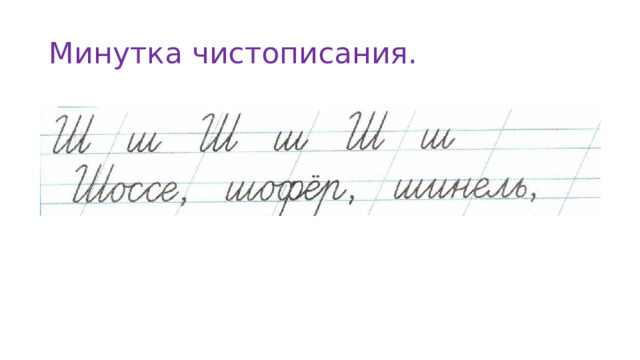 Минутка чистописания.
Ш ш Ш ш Ш ш
Шоссе, шофёр, шинель,